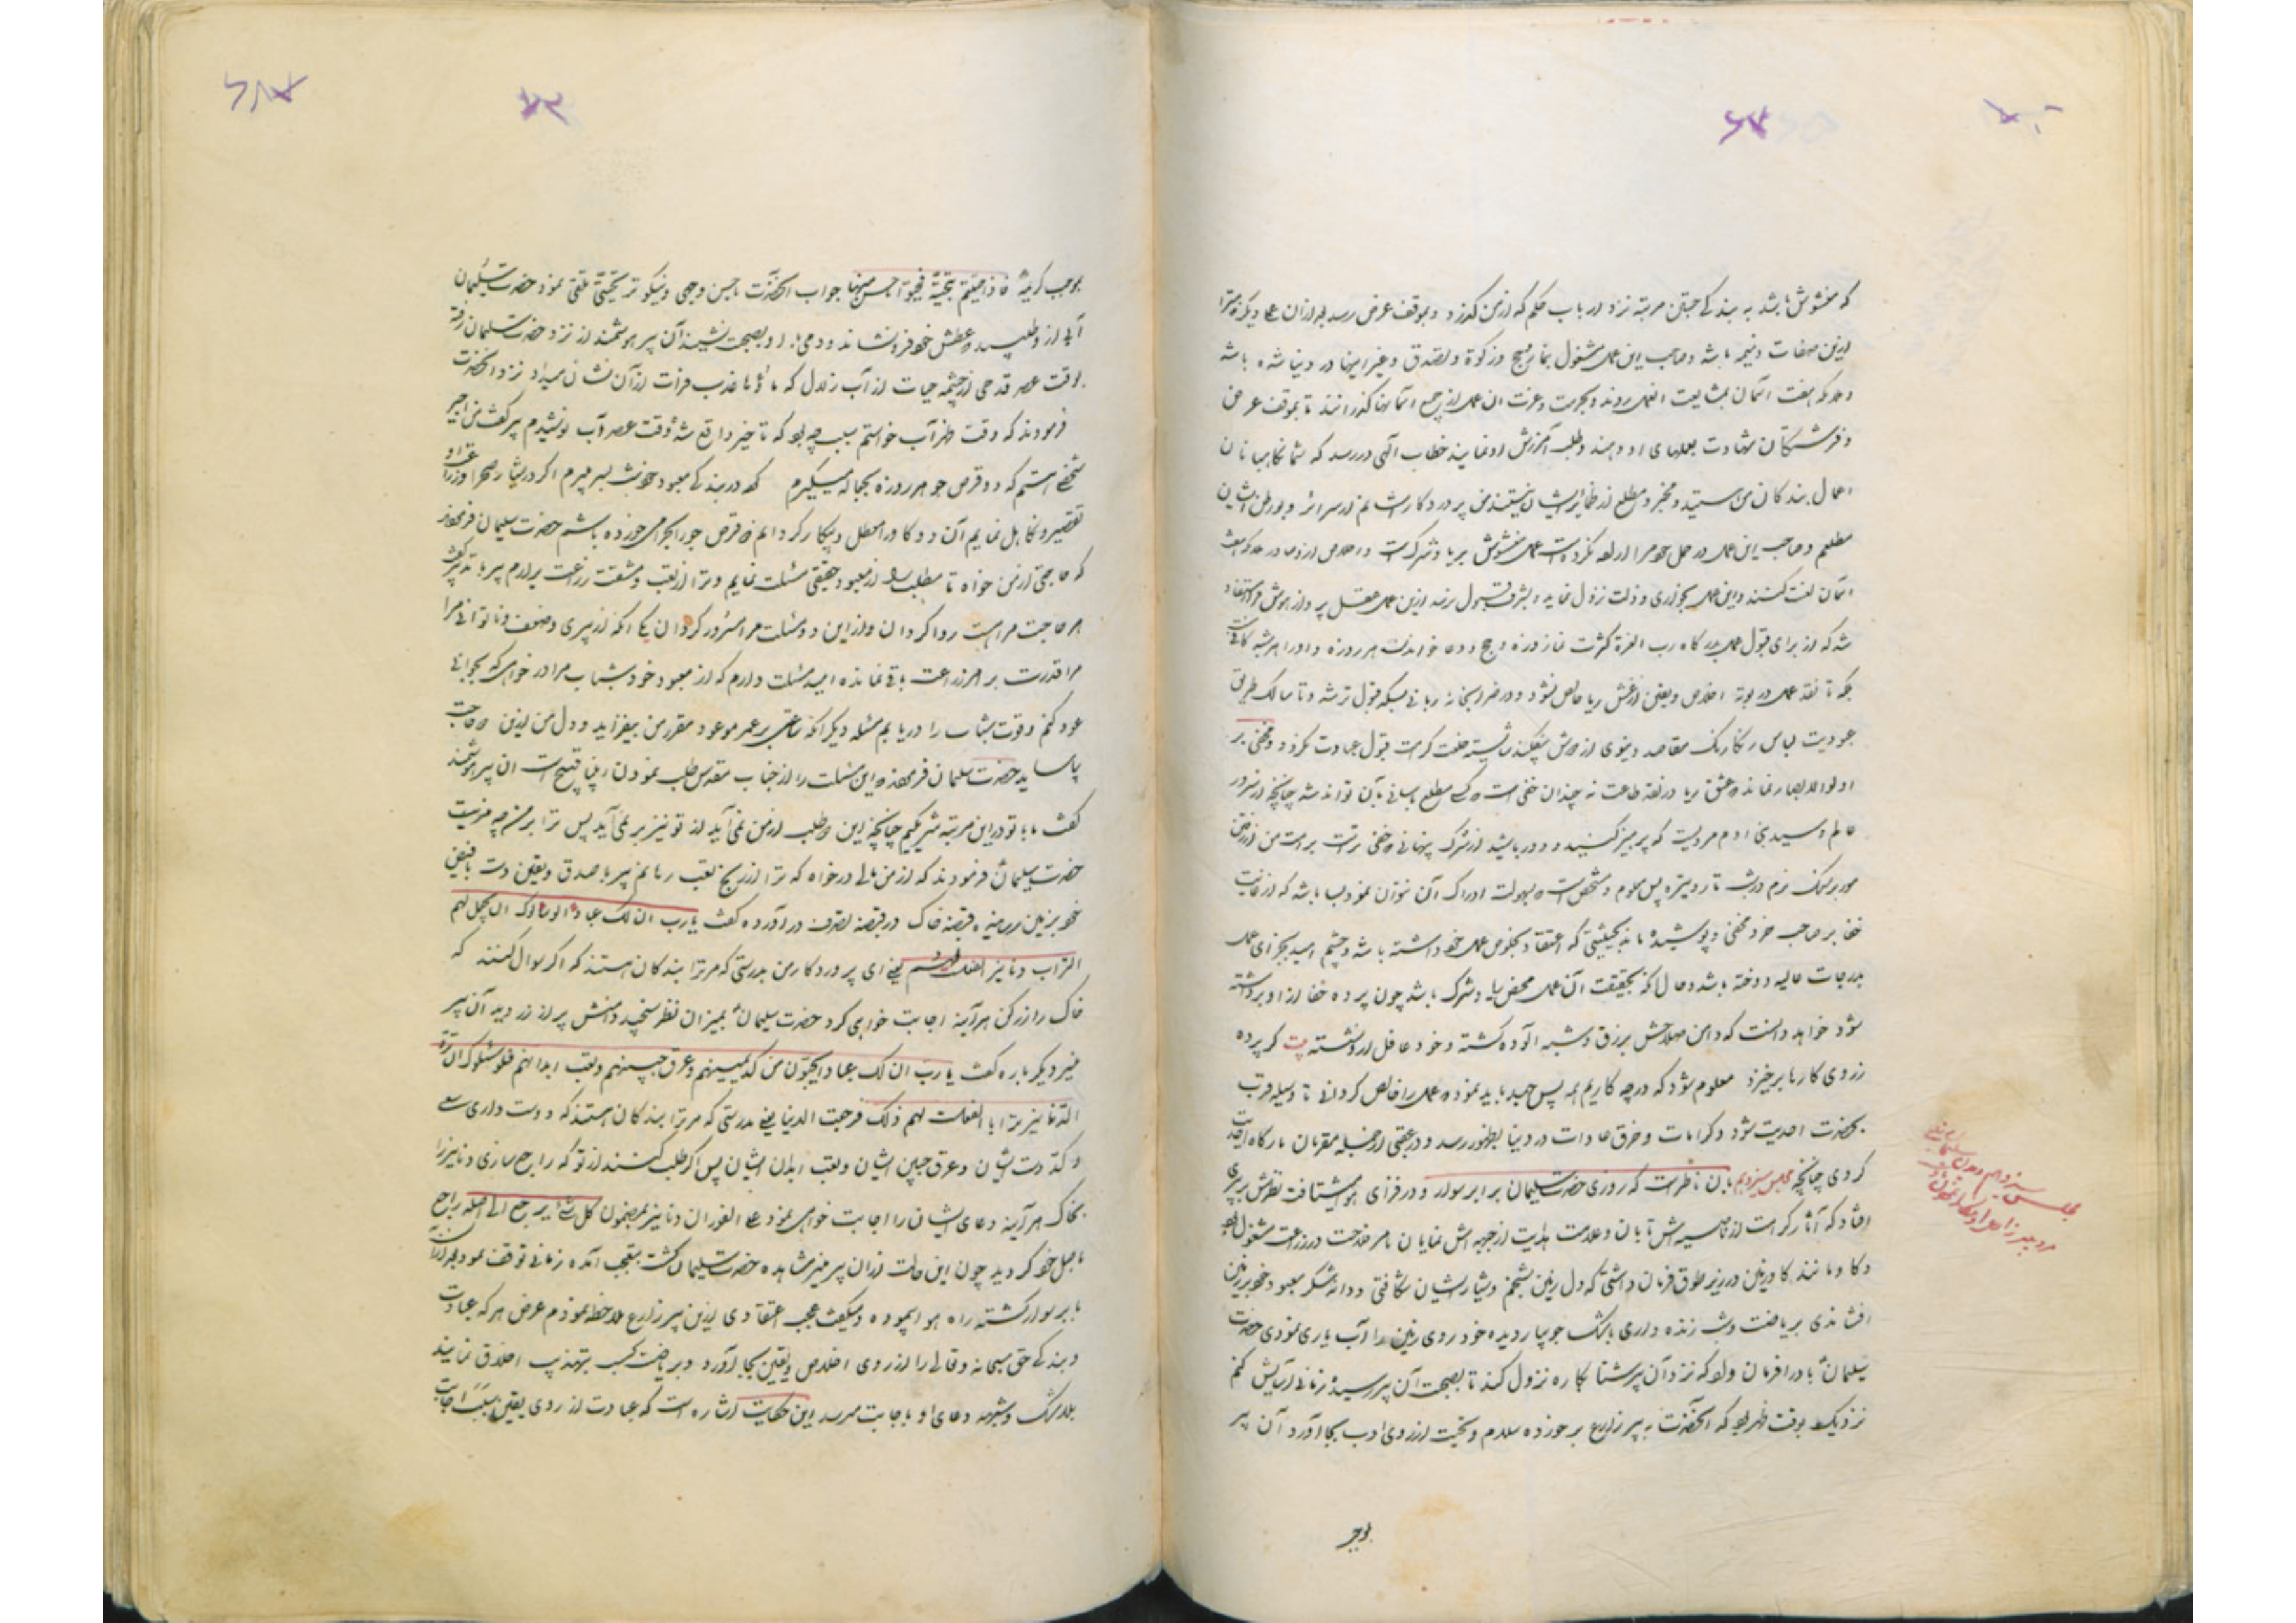 که مغشوش باشد به بندگی حق مرتبه نزد ارباب حکم که از من گذرد و بموقف عرض رسد بعد از آن
ازین صفات ذمیمه باشد و صاحب این عمل مشغول بنماز و حج و زکوة و تصدق و غیر اینها در دنیا شده باشد
و ملائکه هفت آسمان بمشایعت آن عمل روند و بحرمت و عزت آن عمل از جمیع آسمانها گذرانند تا بموقف عرض
و فرشتگان شهادت بعملهای او دهند و طلب آمرزش او نمایند خطاب الهی در رسد که شما نگاهبانان
اعمال بندگان من هستید و مخبر و مطلع از ضمایر ایشان نیستند من پروردگار شما ام از سرائر و بواطن ایشان
مطلعم و صاحب این عمل در عمل خود مرا اراده نکرده است عمل مغشوش بریا و شرکست
آسمان لعنت کنند و این عمل بخواری و ذلت نزول نماید و بشرف قبول نرسد ازین عمل عقل
شد که از برای قبول عمل بدرگاه رب العزة کثرت نماز و روزه و حج و دعا خواندن هر روزه
بلکه تا نقد عمل در بوتهٔ اخلاص و یقین از غش ریا خالص نشود و در ضرابخانه ربانی بسکه قبول نرسد و تا سالک طریق
عبودیت لباس رنگارنگ مقاصد دنیوی از دوش نیفکند شایسته خلعت کرامت قبول عبادت نگردد و مخفی بر
اولوالابصار نماند که غش ریا در نقد طاعت نه چندان خفی است که کسی مطلع بآسانی بآن تواند شد چنانچه از سرور
عالم و سید بنی آدم مرویست که پرهیز کنید و دور باشید از شرک پنهانی که خفی تر است بر امت من از رفتن
مور بر سنگ نرم در شب تار و تیره پس معلوم و مشخص است که بسهولت ادراک آن نتوان نمود بسا باشد که از غایت
خفا بر صاحب خود مخفی و پوشیده ماند بحیثیتی که اعتقاد بخلوص عمل خود داشته باشد و چشم امید بجزای عمل
بدرجات عالیه دوخته باشد و حال آنکه بحقیقت آن عمل محض ریا و شرک باشد چون پرده خفا از او برداشته
شود خواهد دانست که دامن صلاحش برزق و شبه آلوده گشته و خود غافل از او نشسته بیت گر پرده
ز روی کارها برخیزد معلوم شود که در چه کاریم همه پس جهد باید نمود که عمل را خالص گردانی تا وسیله قرب
بحضرت احدیت شود و کرامات و خرق عادات در دنیا بظهور رسد و در عقبی از جمله مقربان بارگاه احدیت
گردی چنانچه مجلس سیزدهم بآن ناطق است که روزی حضرت سلیمان بر ابر سوار و در فزای هوا میشتافت نظرش بپیری
افتاد که آثار کرامت از ناصیه اش تابان و علامت هدایت از جبهه اش نمایان بامر فلاحت و زراعت مشغول بود
و گاو مانند گاو زمین در زیر طوق فرمان داشتی که دل زمین بشخم و شیار ایشان شکافتی و دانه شکر معبود خود بر زمین
افشاندی بریاضت و شب زنده داری باشک جویبار دیده خود روی زمین را آب یاری نمودی حضرت
سلیمان باد را فرمان داد که نزد آن پیر شتابکاره نزول کند تا بصحبت آن پیر رسیده زمانی آسایش کنم
نزدیک بوقت ظهر بود که آنحضرت به پیر زارع برخورده سلام و تحیت از روی ادب بجا آورد آن پیر
بموجب
مجلس سیزدهم
بموجب کریمهٔ فاذا حییتم بتحیة فحیوا باحسن منها جواب آنحضرت باحسن وجهی و نیکوتر تحیتی تلقی نمود حضرت سلیمان
آبی از او طلبیده که عطش خود فرو نشاند و دمی با او بصحبت نشیند آن پیر هوشمند از نزد حضرت سلیمان رفته
بوقت عصر قدحی از چشمه حیات از آب زلال که ماؤها عذب فرات از آن نشان میداد نزد آنحضرت
فرمودند که وقت ظهر آب خواستم سبب چه بود که تاخیر واقع شد که وقت عصر آب نوشیدم پیر گفت من اجیر
شخصی هستم که دو قرص جو هر روزه بجهاله میگیرم که در بندگی معبود خویش بسر میبرم اگر در شیار صحرا و زراعت او
تقصیر و تکاهل نمایم آن دو گاو را معطل و بیکار گردانم که قرص جو را بحرام خورده باشم حضرت سلیمان فرمودند
که حاجتی از من خواه تا مطلب تو از معبود حقیقی مسئلت نمایم و ترا از تعب و مشقت زراعت برآرم پیر گفت
هر حاجت مراست روا گردان و از این دو مسئلت مرا مسرور گردان یکی آنکه از پیری و ضعف و ناتوانی مرا
مرا قدرت بر امر زراعت باقی نمانده امید مسئلت دارم که از معبود خود شباب مرا در خواهی که بجوانی
عود کنم و قوت شباب را دریابم مسئله دیگر آنکه ساعتی بر عمر موعود مقرر من بیفزاید و دل من ازین دو حاجت
بیاساید حضرت سلیمان فرمودند که این مسئلت را از جناب مقدس طلب نمودن قبیح است آن پیر هوشمند
گفت ما با تو در این مرتبه شریکیم چنانچه این مطلب از من نمی آید از تو نیز بر نمی آید پس ترا بر من چه مزیت
حضرت سلیمان فرمودند که از من مالی در خواه که ترا از رنج تعب رهانم پیر با صدق و یقین دست با فیض
خود بر زمین رسانیده قبضه خاک در قبضه تصرف در آورده گفت یا رب ان لک عبادا لو سالوک ان تجعل لهم
التراب دنانیر لفعلت لهم یعنی ای پروردگار من بدرستی که مر ترا بندگان هستند که اگر سوال کنند که
خاک را زر کن هر آینه اجابت خواهی کرد حضرت سلیمان بمیزان نظر سنجید دامنش پر از زر دید آن پیر
منیر دیگر باره گفت یا رب ان لک عبادا یحبون من کد یمینهم و عرق جبینهم و تعب ابدانهم فلو سئلوک ان ترد
الدنانیر ترابا لفعلت لهم ذلک فرجعت الدنانیر یعنی بدرستی که مر ترا بندگان هستند که دوست داری سعی
و کد دست ایشان و عرق جبین ایشان و تعب ابدان ایشان پس اگر طلب کنند از تو که راجع سازی دنانیر را
بخاک هر آینه دعای ایشان را اجابت خواهی نمود علی الفور آن دنانیر بمضمون کل شئ یرجع الی اصله راجع
باصل خود گردید چون این حالت از آن پیر منیر مشاهده حضرت سلیمان گشت بتعجب آمده زمانی توقف نمود بعد از آن
بابر سوار گشته راه هوا پیموده و میگفت عجب اعتقادی ازین پیر زارع ملاحظه نمودم غرض هر که عبادت
و بندگی حق سبحانه و تعالی را از روی اخلاص و یقین بجا آورد و بریاضت کسب تهذیب اخلاق نماید
بلا شک و شبهه دعای او باجابت میرسد این حکایت اشاره است که عبادت از روی یقین سبب اجابت